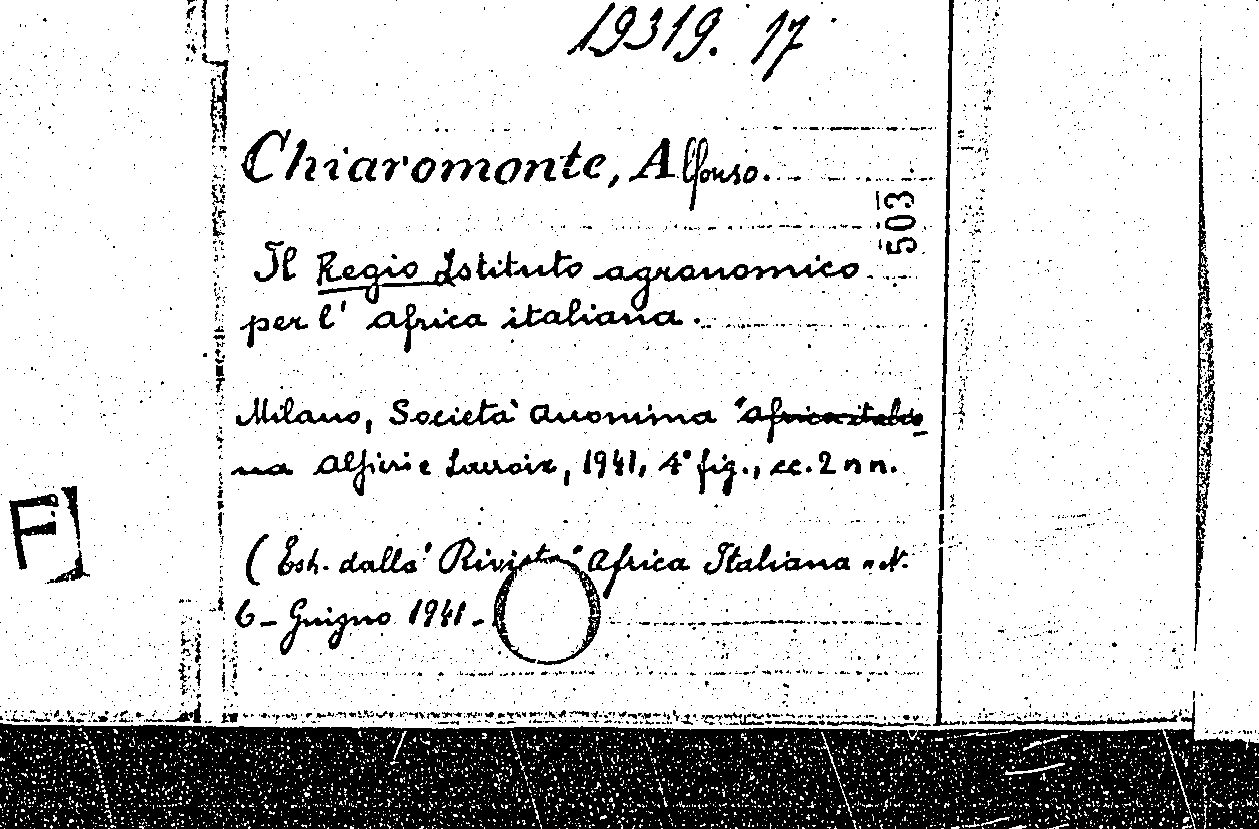 19319. 17
Chiaromonte, Alfonso.
503
Il Regio Istituto agronomico
per l' Africa italiana.
Milano, Società anonima "Africa italia
na Alfieri e Lacroix, 1941, 4° fig., cc. 2 n n.
(Estr. dalla Rivista "Africa Italiana" N.
6 - Guigno 1941 -
F